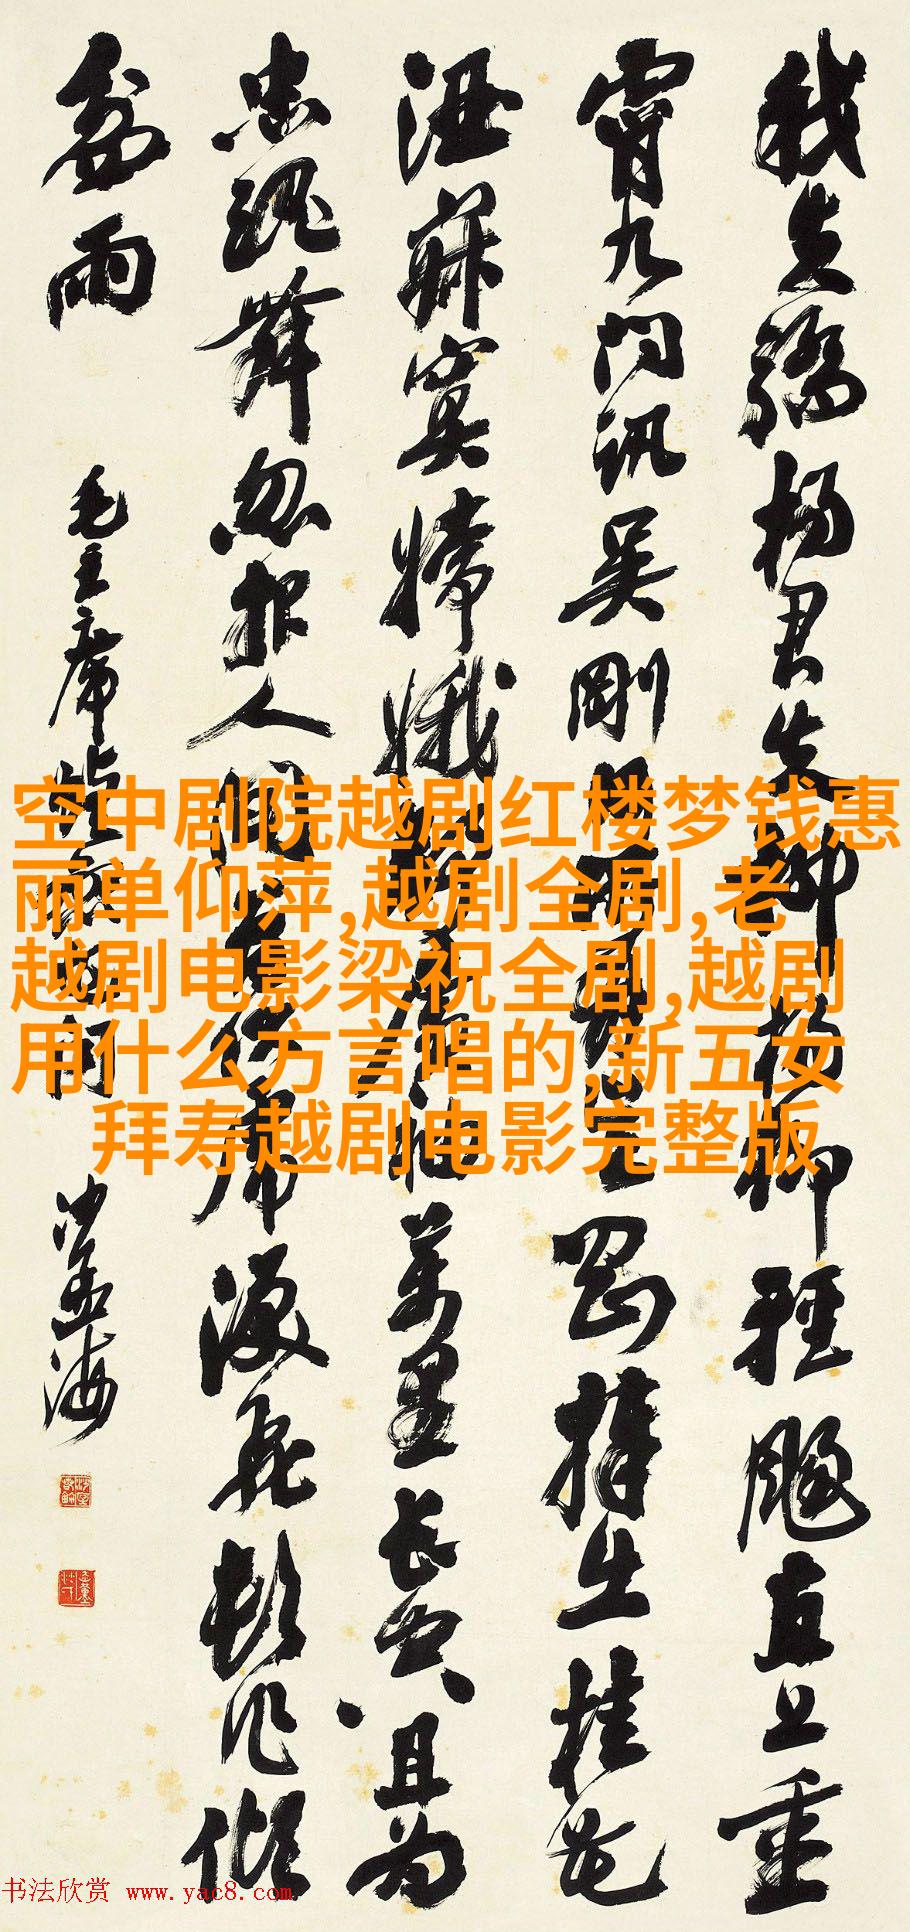 我失驕楊君失柳楊柳輕颺直上重
霄九問訊吳剛何所有吳剛捧出桂花
酒寂寞嫦娥舒廣袖萬里長空且為
忠魂舞忽報人間曾伏虎淚飛頓作傾
盆雨
毛主席蝶戀花詞
沙孟海
空中剧院越剧红楼梦钱惠
丽单仰萍,越剧全剧,老
越剧电影梁祝全剧,越剧
用什么方言唱的,新五女
拜寿越剧电影完整版
书法欣赏 www.yac8.com